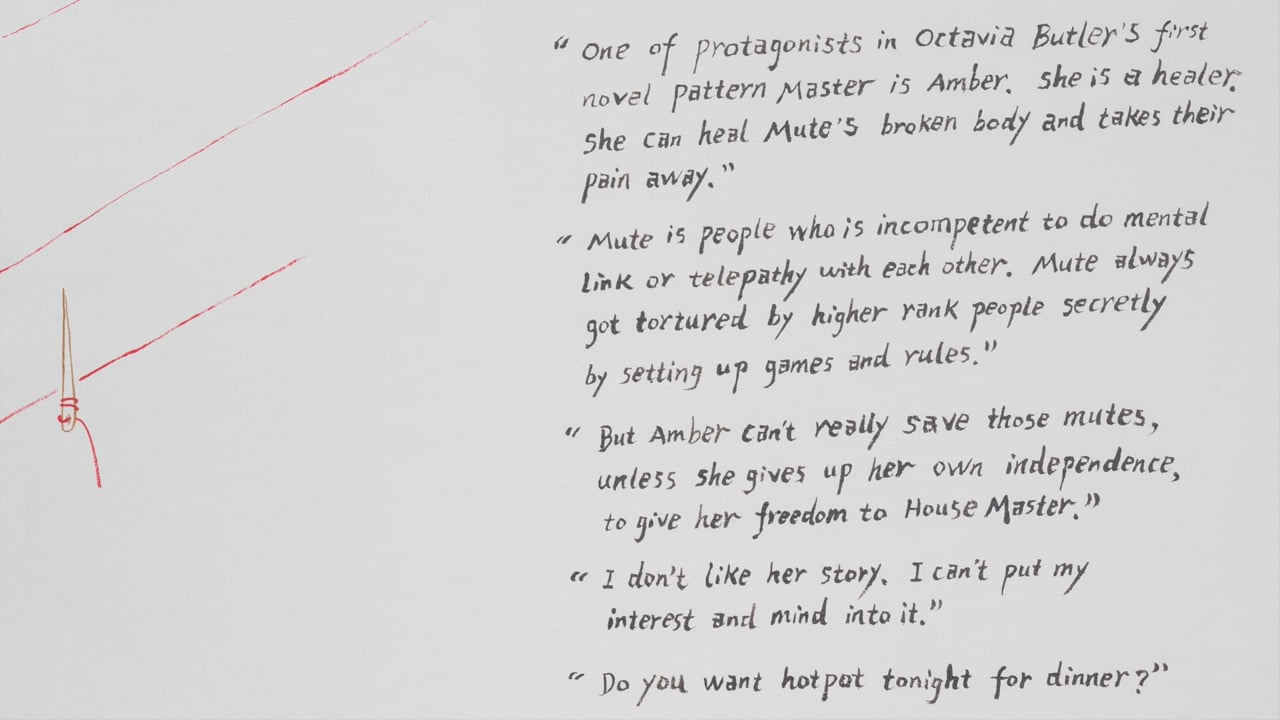 “ One of protagonists in Octavia Butler's first
novel pattern Master is Amber. she is a healer.
She can heal Mute's broken body and takes their
pain away.”
“ Mute is people who is incompetent to do mental
link or telepathy with each other. Mute always
got tortured by higher rank people secretly
by setting up games and rules.”
“ But Amber can't really save those mutes,
unless she gives up her own independence,
to give her freedom to House Master.”
“ I don't like her story. I can't put my
interest and mind into it.”
“ Do you want hotpot tonight for dinner?”